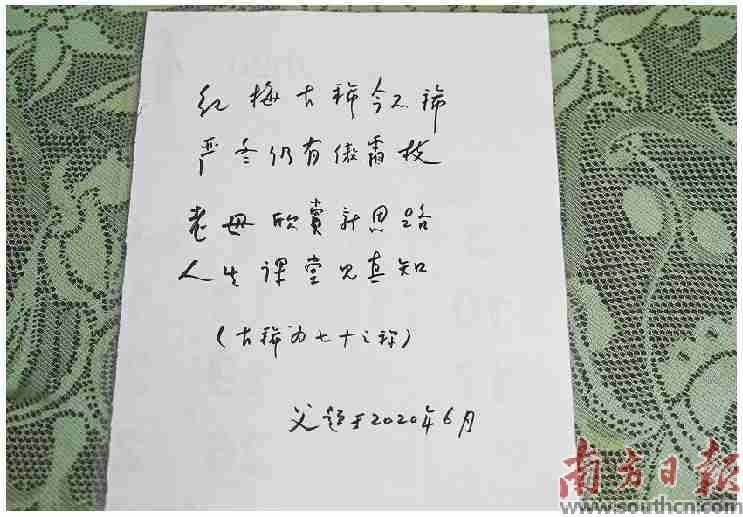 红梅古稀今不稀
严冬仍有傲霜枝
老母欣赏新思路
人生课堂见真知
(古稀为七十之称)
父题于2020年6月
南方日报
www.southcn.com